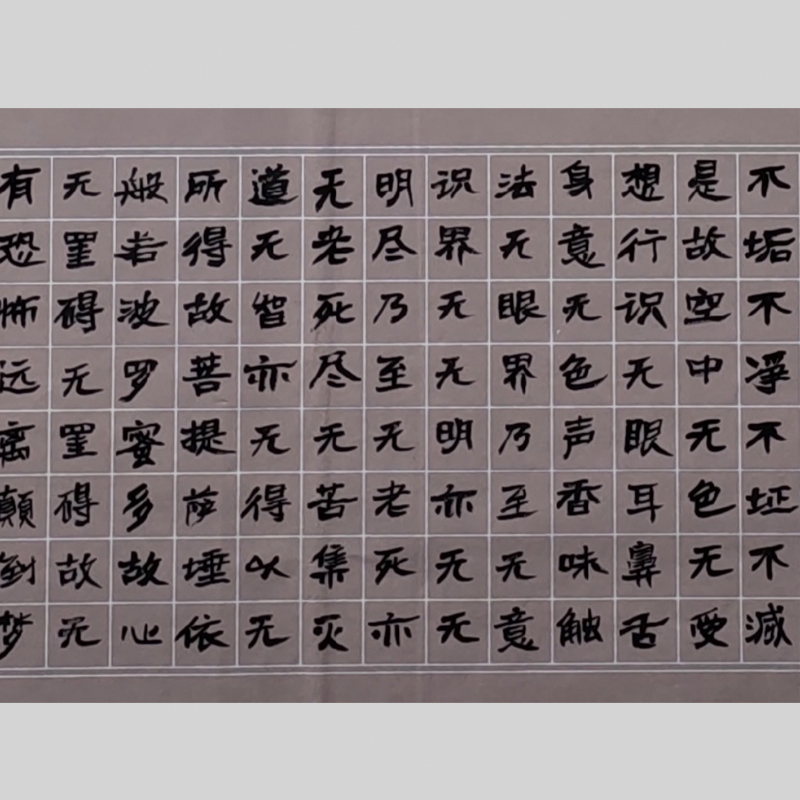 不垢不凈不不減
是故空中无色无受
想行识无眼耳鼻舌
身意无色声香味触
法无眼界乃至无意
识界无无明亦无无
明尽乃至无老死亦
无老死尽无苦集灭
道无智亦无得以无
所得故菩提萨埵依
般若波罗蜜多故心
无罣碍无罣碍故无
有恐怖远离颠倒梦